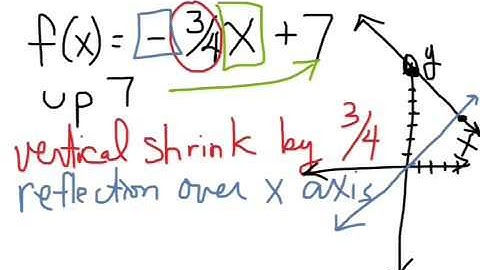 f(x) = -3/4x + 7
up 7
vertical shrink by 3/4
reflection over x axis
y
x